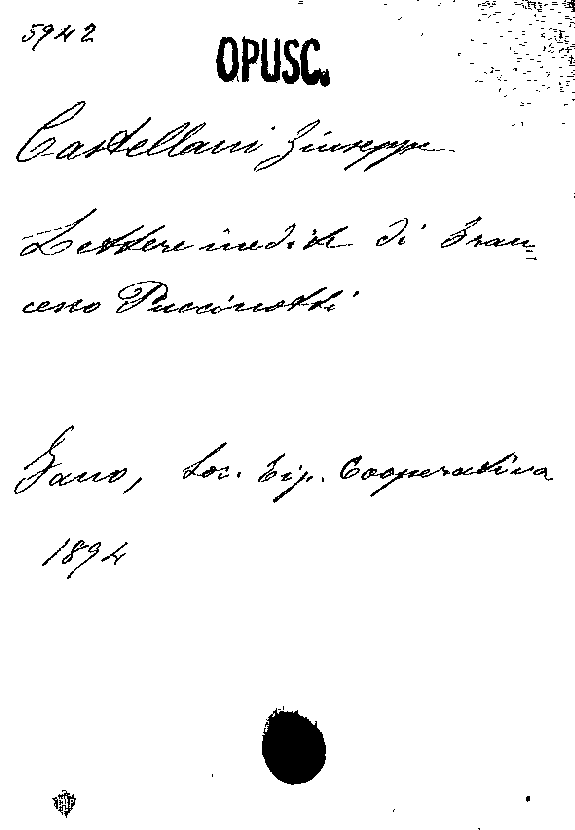 5942
OPUSC.
Castellani Giuseppe
Lettere inedite di Fran=
cesco Puccinotti
Fano, Soc. Tip. Cooperativa
1894